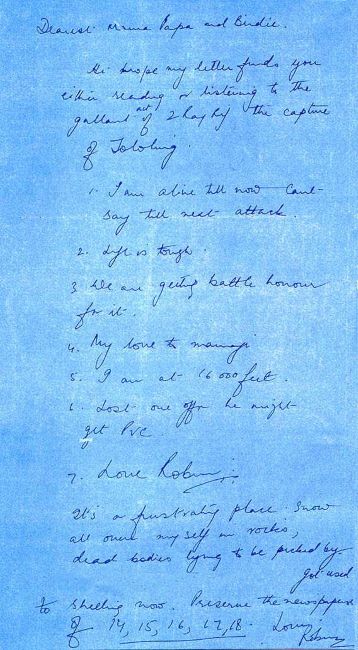 Dearest Mama Papa and Birdie.
Hi hope my letter finds you
either reading or listening to the
gallant act of 2 Raj Rif the capture
of Tololing.
1. I am alive till now Cant
say till next attack.
2. Life is tough.
3. We are getting battle honour
for it.
4. My love to
5. I am at 16000 feet.
6. Lost one offr he might
get PVC.
7. Love Robin.
It's a frustrating place. Snow
all over myself in rocks,
dead bodies lying to be picked by
Got used
to shelling now. Preserve the newspapers
of 14, 15, 16, 17, 18.